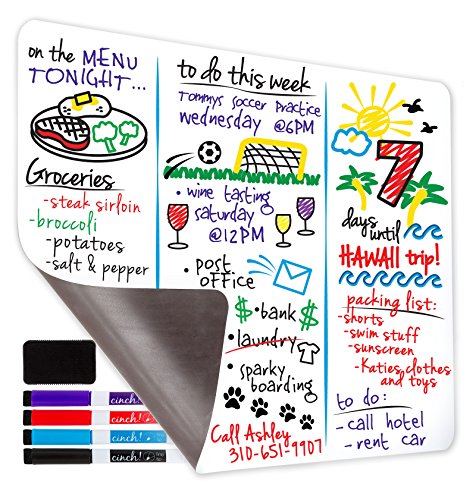 on the MENU
TONIGHT...
Groceries
-steak sirloin
-broccoli
-potatoes
-salt & pepper
to do this week
Tommys Soccer Practice
wednesday @6PM
• wine tasting
saturday
@12PM
• post
office
$ • bank $
• laundry
• sparky
boarding
Call Ashley
310-651-9907
7
days until
HAWAII trip!
packing list:
-shorts
-swim stuff
-sunscreen
-Katies clothes
and toys
to do:
- call hotel
- rent car
cinch!
cinch!
cinch!
cinch!